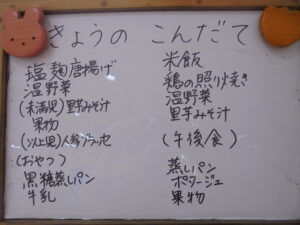 きょうの こんだて
塩麹唐揚げ
温野菜
(未満児)里芋みそ汁
果物
(以上児)人参グラッセ
(おやつ)
黒糖蒸しパン
牛乳
米飯
鶏の照り焼き
温野菜
里芋みそ汁
(午後食)
蒸しパン
ポタージュ
果物